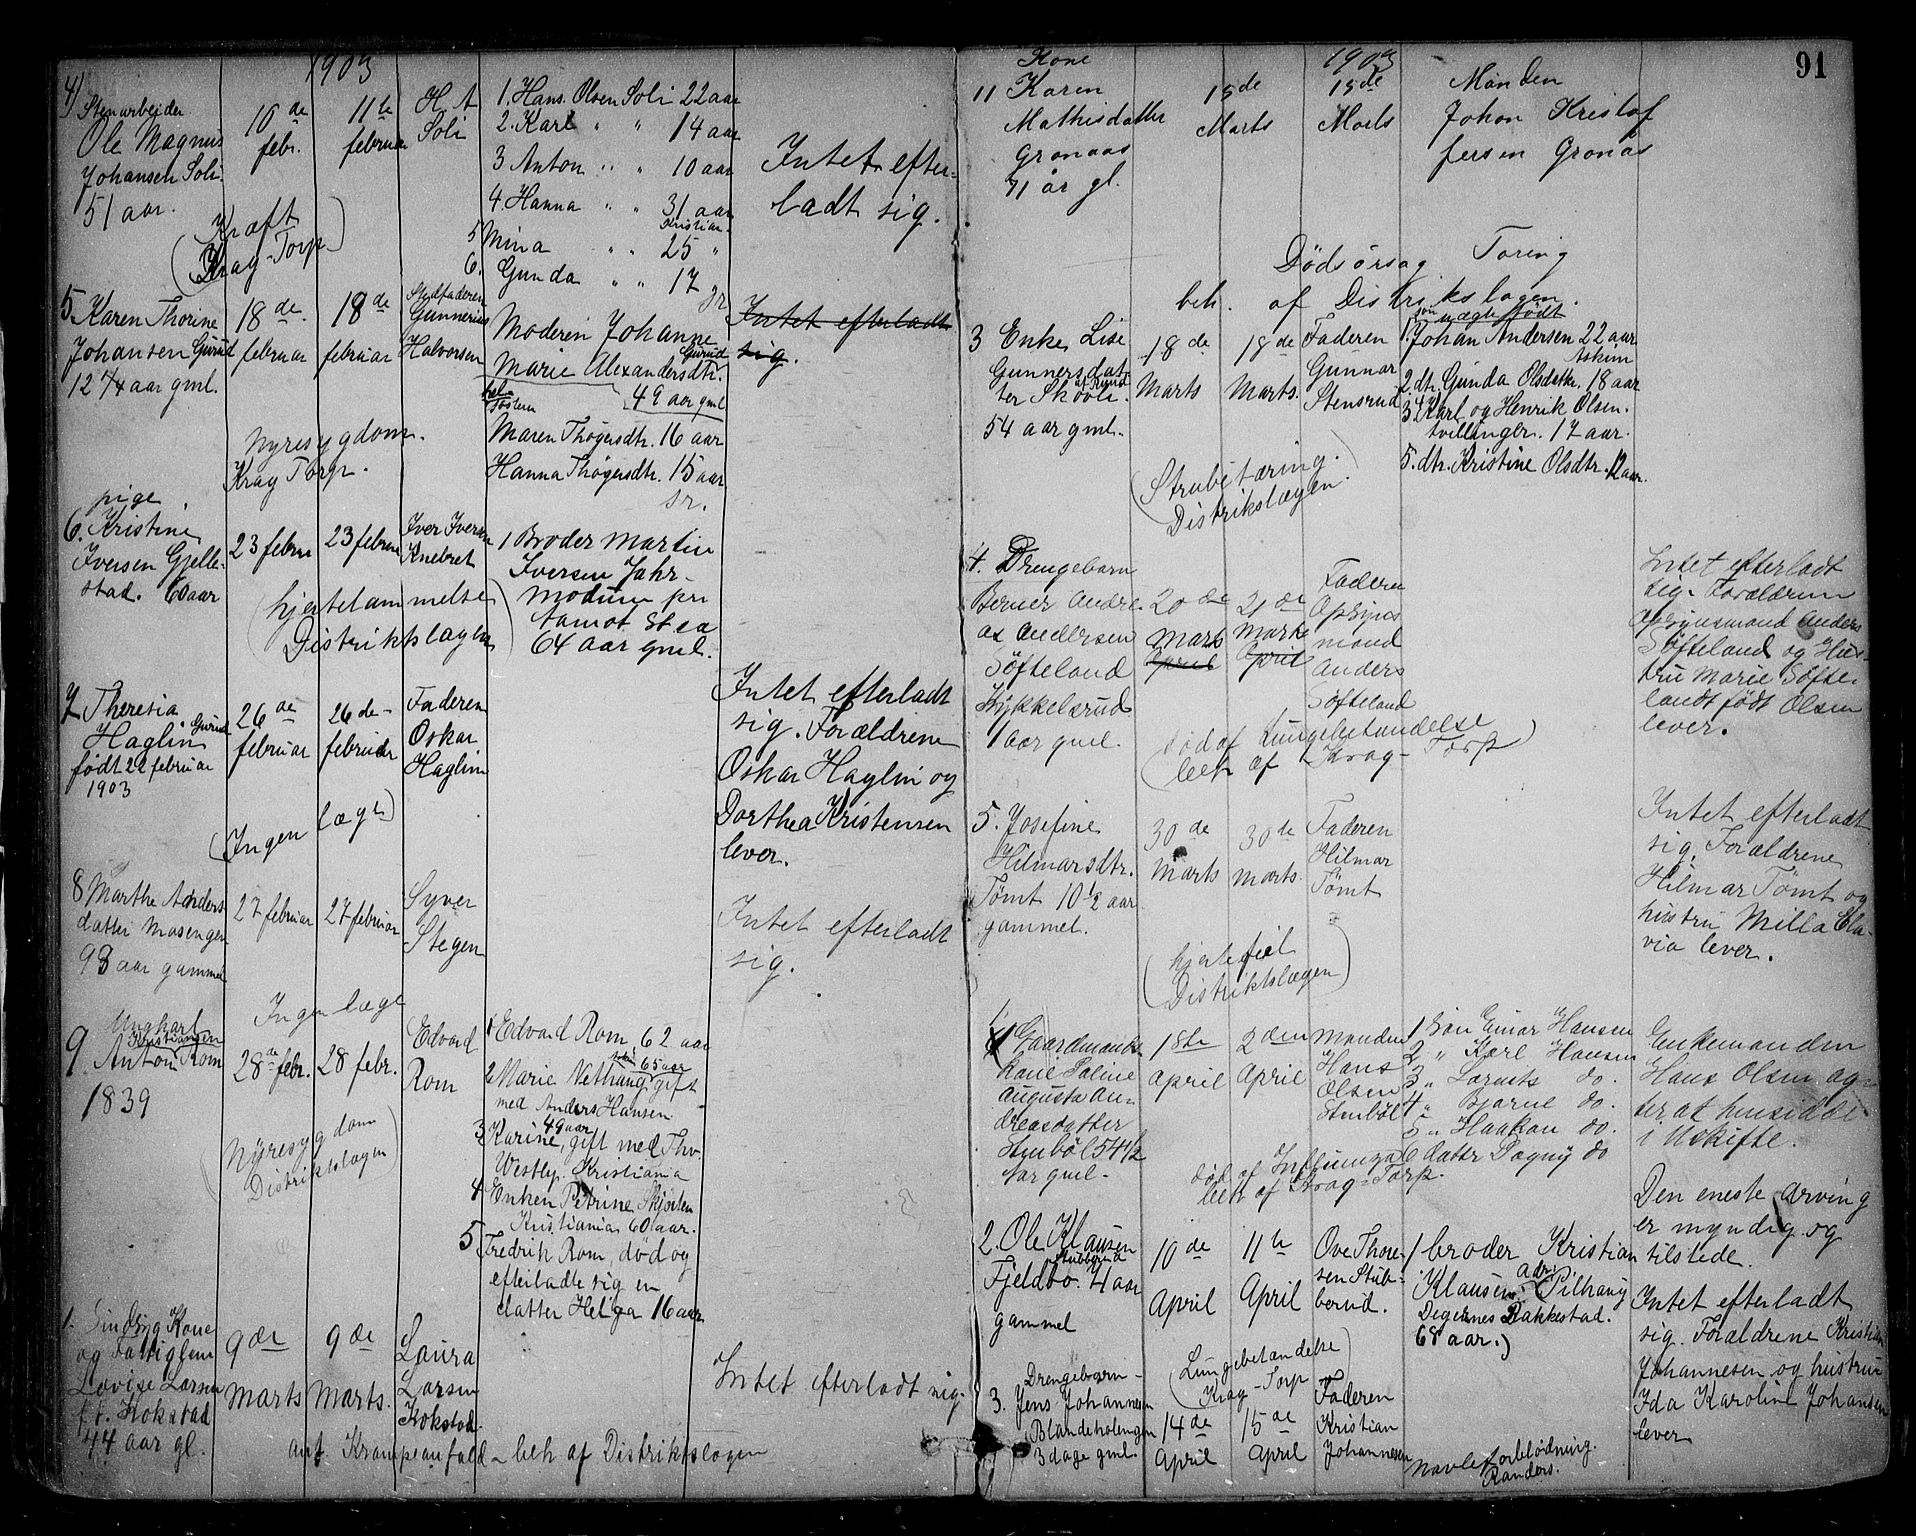 1903
4) Stenarbeider
Ole Magnus
Johansen Soli.
51 aar.
10de
febr.
11te
februar
H. A
Soli
1. Hans Olsen Soli 22 aar
2. Karl " " 14 aar
3 Anton " " 10 aar
4. Hanna " " 31 aar
Kristian-
5 Mina " " 25 "
6. Gunda " " 17
Intet efter-
ladt sig.
Kræft
(Krag-Torp)
5. Karen Thorine
Johansen Gurud
12 3/4 aar gml.
18de
februar
18de
februar
Stedfaderen
Gunnerius
Halvorsen
Moderen Johanne
Marie Alexandersdtr. Gurud
49 aar gml
hel
søstern
Maren Thøgersdtr. 16 aar
Hanna Thøgersdtr. 15 aar
Intet efterladt
sig.
Nyresygdom.
Krag Torp.
pige
6. Kristine
Iversen Gjelle-
stad. 60 aar
23 februar
23 februar
Iver Iversen
Knebret
1 Broder Martin
Iversen Jahr-
Modum pr
64 aar gml.
(hjertelammelse
Distriktslægen)
7 Theresia
Haglin Gurud
født 22 februar
1903
26de
februar
26de-
februar
Faderen
Oskar
Haglin
Intet efterladt
sig. Forældrene
Oskar Haglin og
Dorthea Kristensen
lever.
(Ingen læge)
8 Marthe Anders
datter Mosengen
93 aar gammel
27 februar
27 februar
Syver
Stegen
Intet efterladt
sig.
Ingen læge
Ungkarl
Kristiansen
9 Anton Rom
1839
28de febr.
28 febr.
Edvard
Rom
1 Edvard Rom 62 aar
2 Marie Nethang gift 65 aar
med Anders Hansen
49 aar
3 Karine, gift med Thv.
Westby. Kristiania
4 Enken Petrine Skjolden
Kristiania 60 aar.
5 Fredrik Rom, død og
efterladte sig en
datter Helga 16 aar
(Nyresygdom
Distriktslægen)
1. Kone
og Fattiglem
Lovise Larsen
f. f. Kokstad
44 aar gl.
9de
Marts
9de
Marts.
Laura
Larsen
Kokstad.
Intet efterladt sig.
ant. Krampeanfald - beh af Distriktslægen
91
1903
Kone
11 Karen
Mathisdatter
Grønaas
71 år gl.
15de
Marts
15de
Marts
Manden
Johan Kristof
fersen Grønås
Dødsårsag Tæring
beh. af Distrikslægen.
3 Enke Lise
Gunnersdat-
ter Skovli. af Ruud
54 aar gml.
18de
Marts
18de
Marts.
Faderen
Gunnar
Stensrud
søn uægte født
1. Johan Andersen 22 aar
Askim
2. dtr. Gunda Olsdatter. 18 aar
3. 4 Karl og Henrik Olsen.
tvillinger. 17 aar.
5. dtr. Kristine Olsdtr. 12 aar.
(Strubetæring.
Distrikslægen.)
4. Drengebarn
Berner Andre-
as Andersen
Søfteland
Kykkelsrud
1 aar gml.
20de
Marts
April
21de
Marts
April
Faderen
Opsyns
mand
Anders
Søfteland
Intet efterladt
sig. Forældrene
Opsynsmand Anders
Søfteland og Hus-
tru Marie Søfte-
landt født Olsen
lever.
(død af Lungebetændelse
beh af Krag-Torp)
5. Josefine
Hilmarsdtr.
Tømt 10 1/2 aar
gammel.
30de
Marts
30de
Marts.
Faderen
Hilmar
Tømt
Intet efterladt
sig, Forældrene
Hilmar Tømt og
hustru Milla Ola-
via lever.
(hjertefeil
Distriktslægen)
1 Gaardmands
kone Paline
Augusta An-
dreasdatter
Stenbøl 54 1/2
Aar gml.
1ste
April
2den
April
Manden
Hans
Olsen
Stenbøl
1 Søn Einar Hansen
2 " Karl Hansen
3 " Laurits do.
4 " Bjarne do.
5 " Haakon do.
6 datter Dagny do
Enkemanden
Hans Olsen ag-
ter at hensidde
i Uskifte.
død af Influenza
beh af Krag-Torp.
2. Ole Klausen
Stubberud
Fjeldbo. 74 aar
gammel
10de
April
11te
April
Ove Thore-
sen Stub-
berud.
1 broder Kristian
Klausen Pilhaug
Degernes Rakkestad.
68 aar.)
Den eneste arving
er myndig og
tilstede.
(Lungebetændelse
Krag-Torp)
Drengebarn-
3. Jens Johannesen
Blandeholengen
3 dage gml.
14de
April
15de
April
Faderen
Kristian
Johannesen
Intet efterladt
sig. Forældrene Kristian
Johannesen og hustru
Ida Karoline Johansen
lever
Navleforblødning.
Randers.